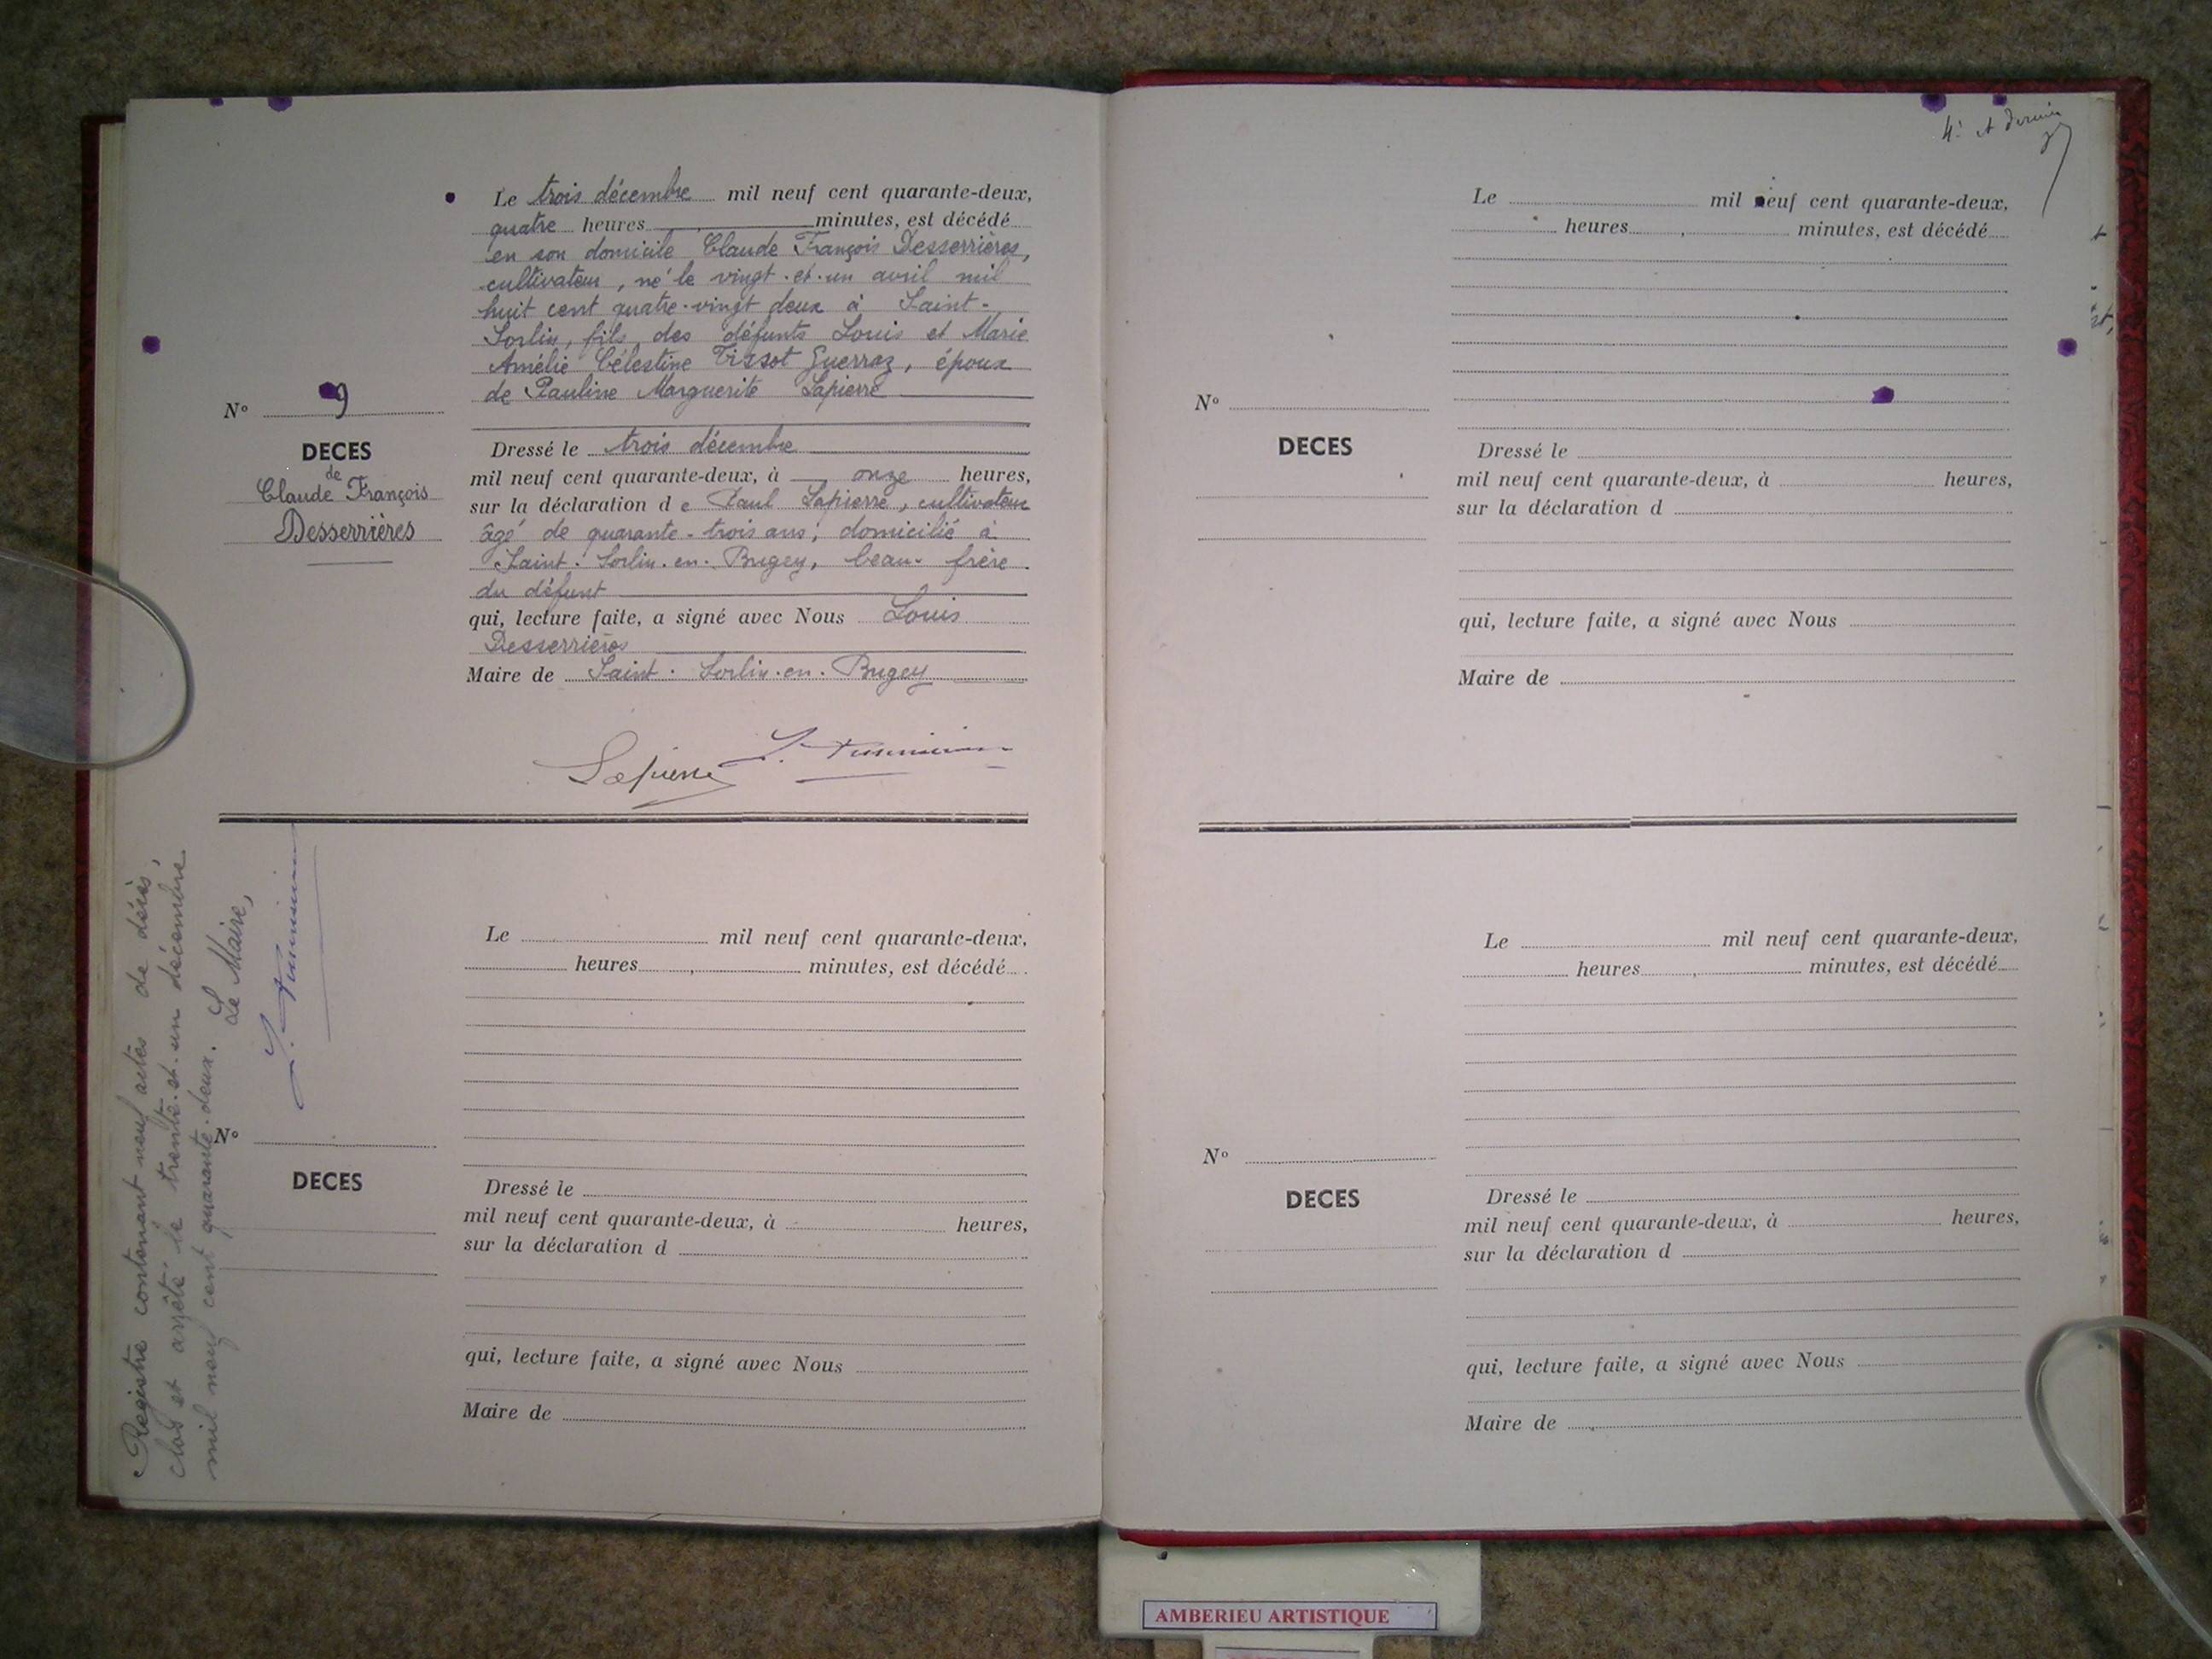 Le trois décembre mil neuf cent quarante-deux,
quatre heures minutes, est décédé
en son domicile Claude François Desserrières,
cultivateur, né le vingt-et-un avril mil
huit cent quatre-vingt deux à Saint-
Sorlin, fils des défunts Louis et Marie
Amélie Célestine Tissot Guerraz, époux
de Pauline Marguerite Lapierre
N° 9
DECES
de
Claude François
Desserrières
Dressé le trois décembre
mil neuf cent quarante-deux, à onze heures,
sur la déclaration de Paul Lapierre, cultivateur
âgé de quarante-trois ans, domicilié à
Saint-Sorlin-en-Bugey, beau-frère
du défunt
qui, lecture faite, a signé avec Nous Louis
Desserrières
Maire de Saint-Sorlin-en-Bugey
Lapierre
Registre contenant neuf actes de décès,
clos et arrêté le trente-et-un décembre
mil neuf cent quarante-deux. Le Maire,
Le mil neuf cent quarante-deux,
heures, minutes, est décédé
N°
DECES
Dressé le
mil neuf cent quarante-deux, à heures,
sur la déclaration d
qui, lecture faite, a signé avec Nous
Maire de
4e et dernier
Le mil neuf cent quarante-deux,
heures, minutes, est décédé
N°
DECES
Dressé le
mil neuf cent quarante-deux, à heures,
sur la déclaration d
qui, lecture faite, a signé avec Nous
Maire de
Le mil neuf cent quarante-deux,
heures, minutes, est décédé
N°
DECES
Dressé le
mil neuf cent quarante-deux, à heures,
sur la déclaration d
qui, lecture faite, a signé avec Nous
Maire de
AMBERIEU ARTISTIQUE